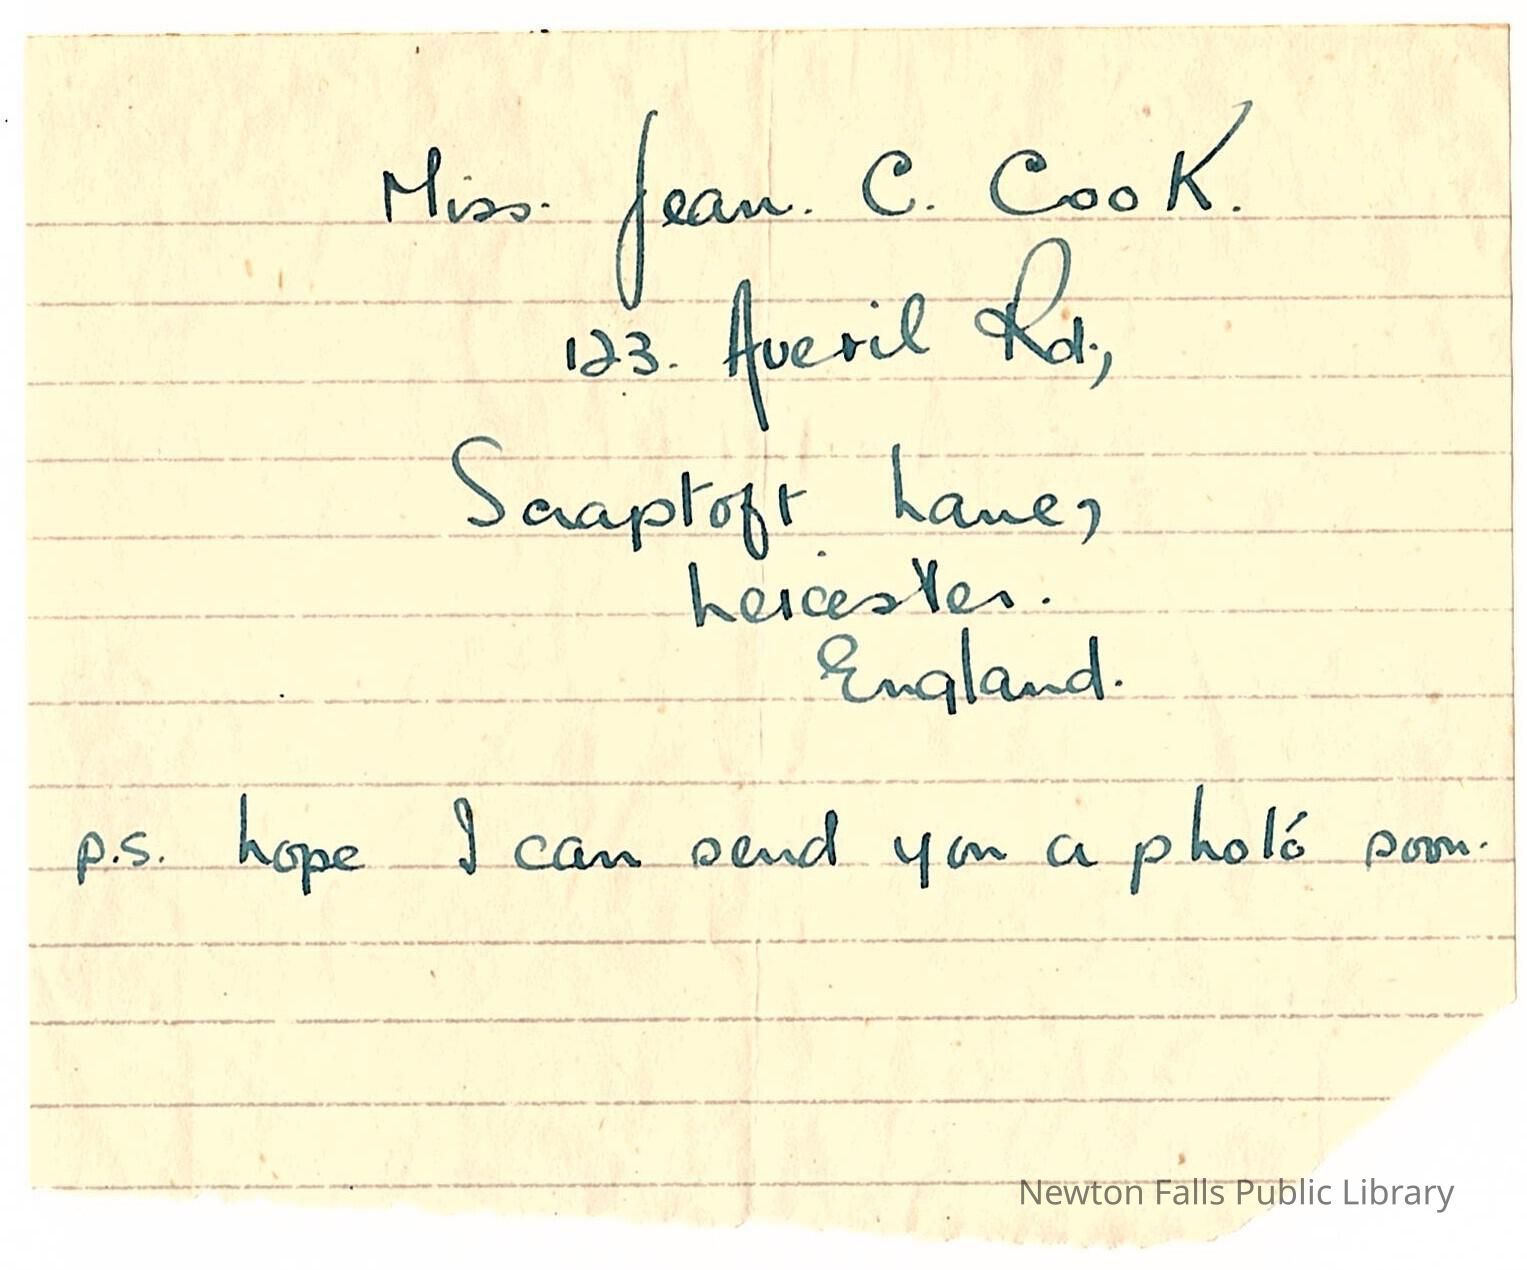 Miss. Jean. C. Cook.
123. Averil Rd.,
Scraptoft Lane,
Leicester.
England.
p.s. hope I can send you a photó soon.
Newton Falls Public Library